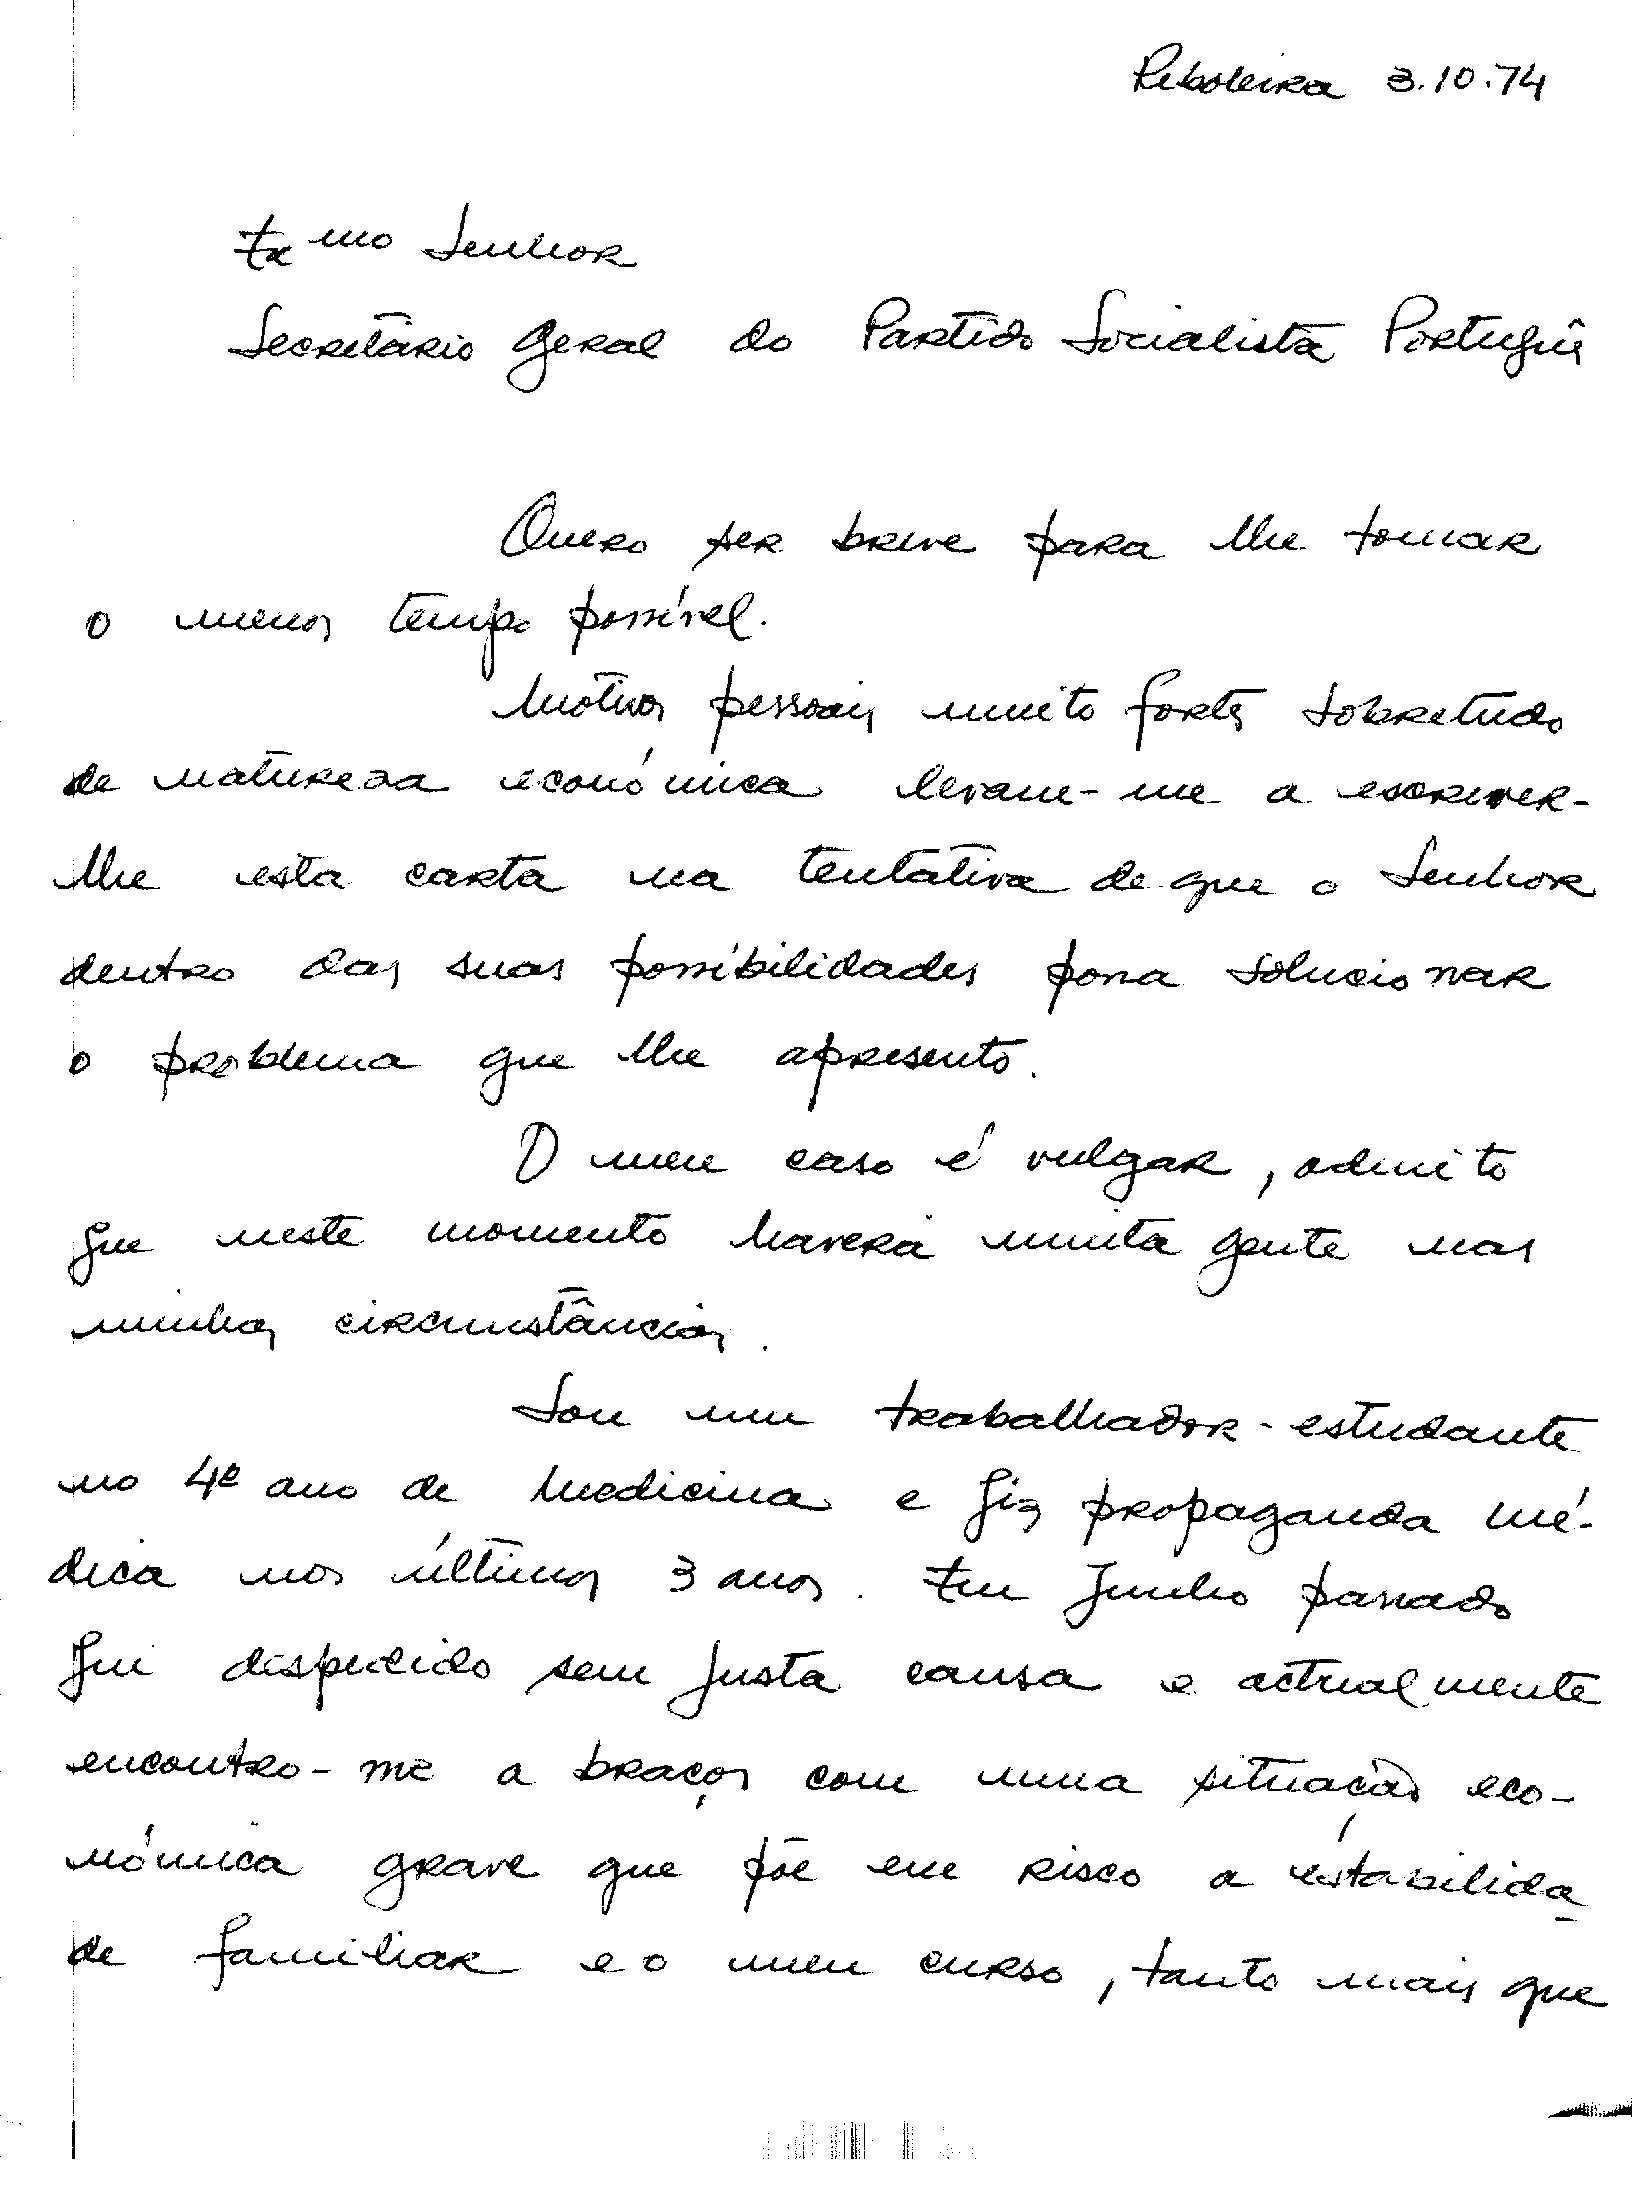 Reboleira 3.10.74
Exmo Senhor
Secretário Geral do Partido Socialista Português
Quero ser breve para lhe tomar
o menos tempo possível.
Motivos pessoais muito fortes sobretudo
de natureza económica levam-me a escrever-
lhe esta carta na tentativa de que o Senhor
dentro das suas possibilidades possa solucionar
o problema que lhe apresento.
O meu caso é vulgar, admito
que neste momento haverá muita gente nas
minhas circunstâncias.
Sou um trabalhador-estudante
no 4º ano de Medicina e fiz propaganda mé-
dica nos últimos 3 anos. Em Junho passado
fui despedido sem justa causa e actualmente
encontro-me a braços com uma situação eco-
nómica grave que põe em risco a estabilida-
de familiar e o meu curso, tanto mais que